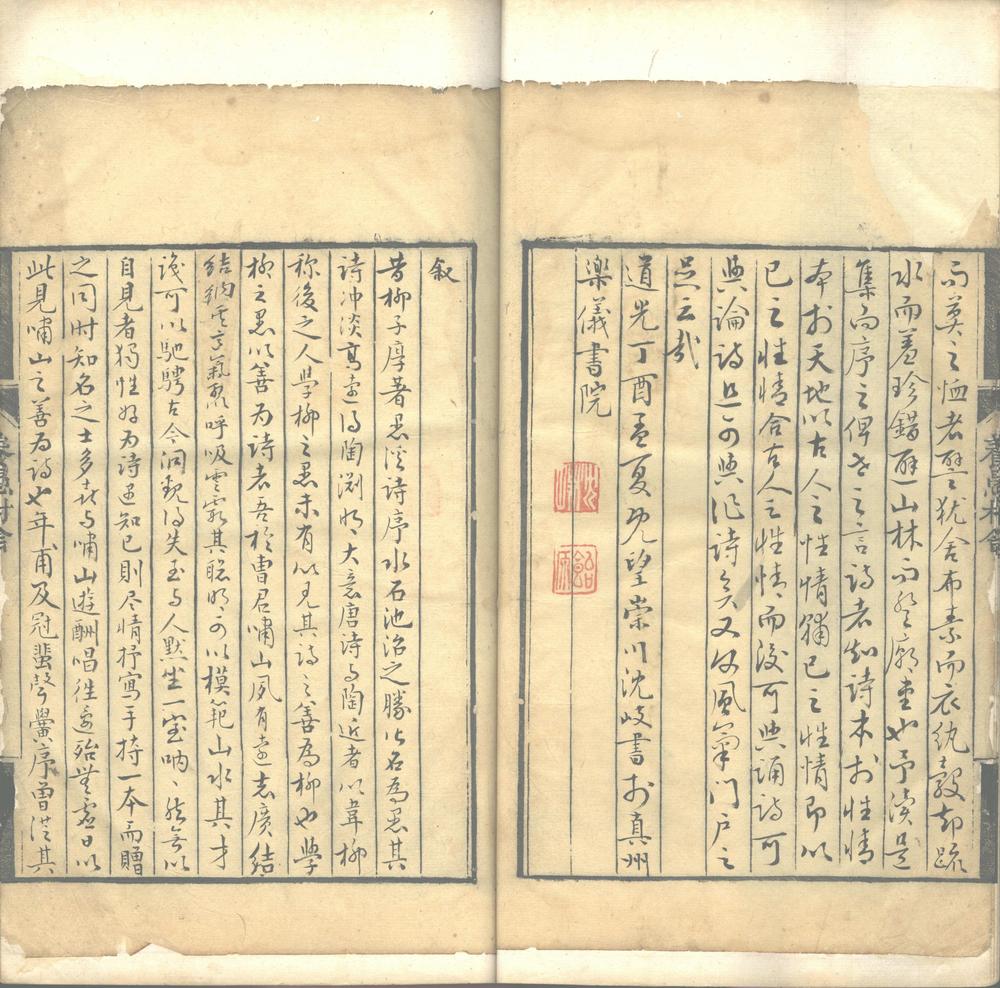 而莫之恤者譬猶舍布素而衣紈縠却蔬
水而羞珍錯避山林而登廊堂也予讀是
集而序之俾世之言詩者知詩本於性情
本於天地以古人之性情歸己之性情即以
己之性情合古人之性情而後可與誦詩可
與論詩且可與作詩矣又何風氣門戶之
足云哉
道光丁酉孟夏既望崇川沈岐書於真州
樂儀書院
叙
昔柳子厚著愚溪詩序水石池沼之勝皆名為愚其
詩冲淡高遠得陶淵明大意唐詩與陶近者以韋柳
称後之人學柳之愚未有以見其詩之善為柳也學
柳之愚以善為詩者吾於曹君嘯山夙有遠志廣結
結納雲亭氣聚呼吸雲霧其聰明可以模範山水其才
識可以馳騁古今洞観得失至与人默坐一室呐呐然無以
自見者獨性好為詩遇知己則尽情抒寫手持一本而贈
之同时知名之士多喜与嘯山遊酬唱往還殆無虚日以
此見嘯山之善为詩也年甫及冠蜚聲黌序曽從其